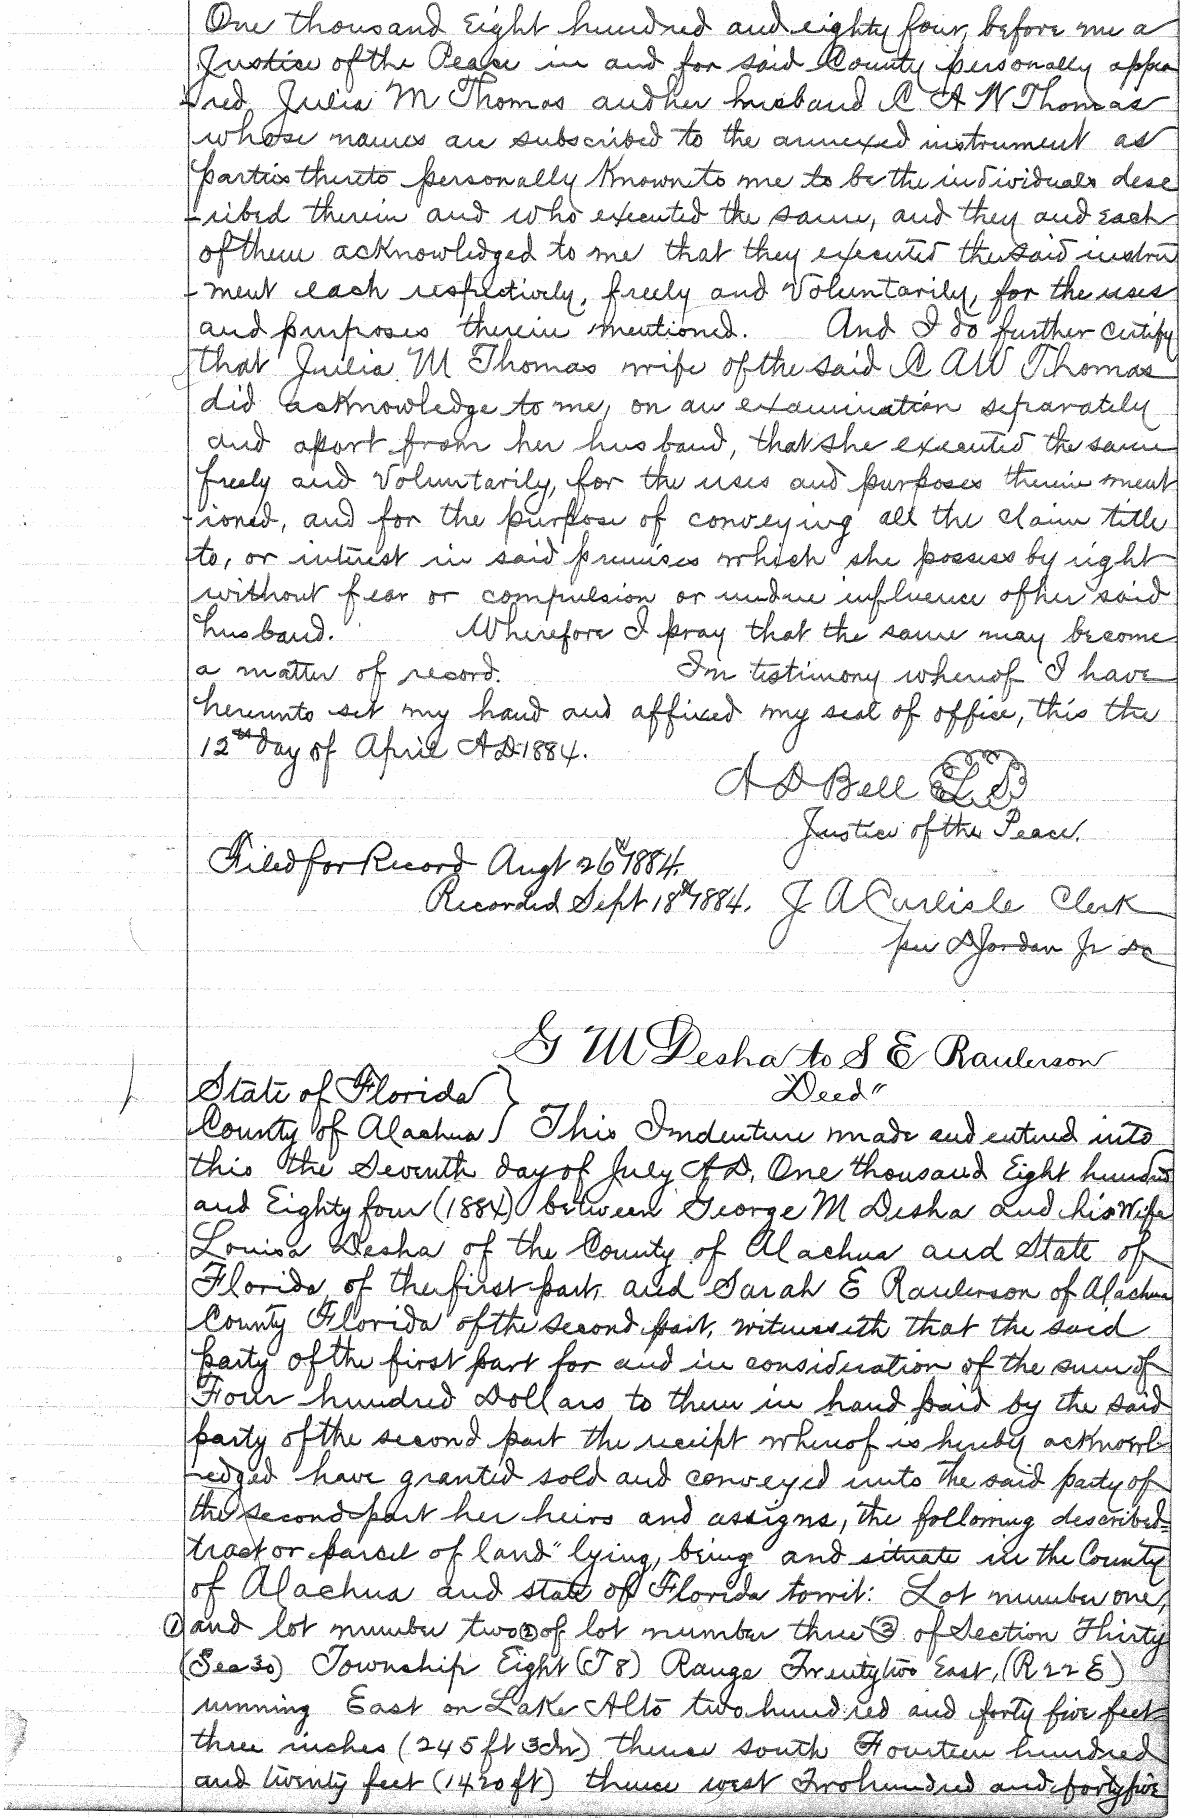 One thousand Eight hundred and eighty four, before me a
Justice of the Peace in and for said County personally appea
-red, Julia M Thomas and her husband C A W Thomas
whose names are subscribed to the annexed instrument as
parties thereto personally Known to me to be the individuals desc
-ribed therein and who executed the same, and they and each
of them acknowledged to me that they executed the said instru
-ment each respectively, freely and Voluntarily, for the uses
and purposes therein mentioned. And I do further certify
that Julia M Thomas wife of the said C A W Thomas
did acknowledge to me, on an examination separately
and apart from her husband, that she executed the same
freely and Voluntarily, for the uses and purposes therein ment
-ioned, and for the purpose of conveying all the claim title
to, or interest in said premises which she possess by right
without fear or compulsion or undue influence of her said
husband. Wherefore I pray that the same may become
a matter of record. In testimony whereof I have
hereunto set my hand and affixed my seal of office, this the
12th day of April A D 1884.
A D Bell L S
Justice of the Peace.
Filed for Record Augt 26th 1884.
Recorded Sept 18th 1884. J A Carlisle Clerk
per D Jordan Jr DC
G M Desha to S E Raulerson
"Deed"
State of Florida }
County of Alachua } This Indenture made and entered into
this the Seventh day of July A D, One thousand Eight hundred
and Eighty four (1884) between George M Desha and his Wife
Louisa Desha of the County of Alachua and State of
Florida, of the first part, and Sarah E Raulerson of Alachua
County Florida of the second part, witnesseth that the said
party of the first part for and in consideration of the sum of
Four hundred Dollars to them in hand paid by the said
party of the second part the receipt whereof is hereby acknowl-
-edged have granted sold and conveyed unto the said party of
the second part her heirs and assigns, the following described
tract or parcel of land" lying, being and situate in the County
of Alachua and state of Florida towit: Lot number one,
① and lot number two ② of lot number three ③ of Section Thirty
(Sec 30) Township Eight (T 8) Range Twenty two East, (R 22 E)
running East on Lake Alto two hundred and forty five feet
three inches (245 ft 3 in) thence south Fourteen hundred
and twenty feet (1420 ft) thence west Two hundred and forty five